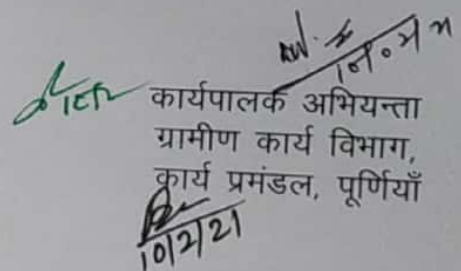 कार्यपालक अभियन्ता
ग्रामीण कार्य विभाग,
कार्य प्रमंडल, पूर्णियाँ
10/2/21